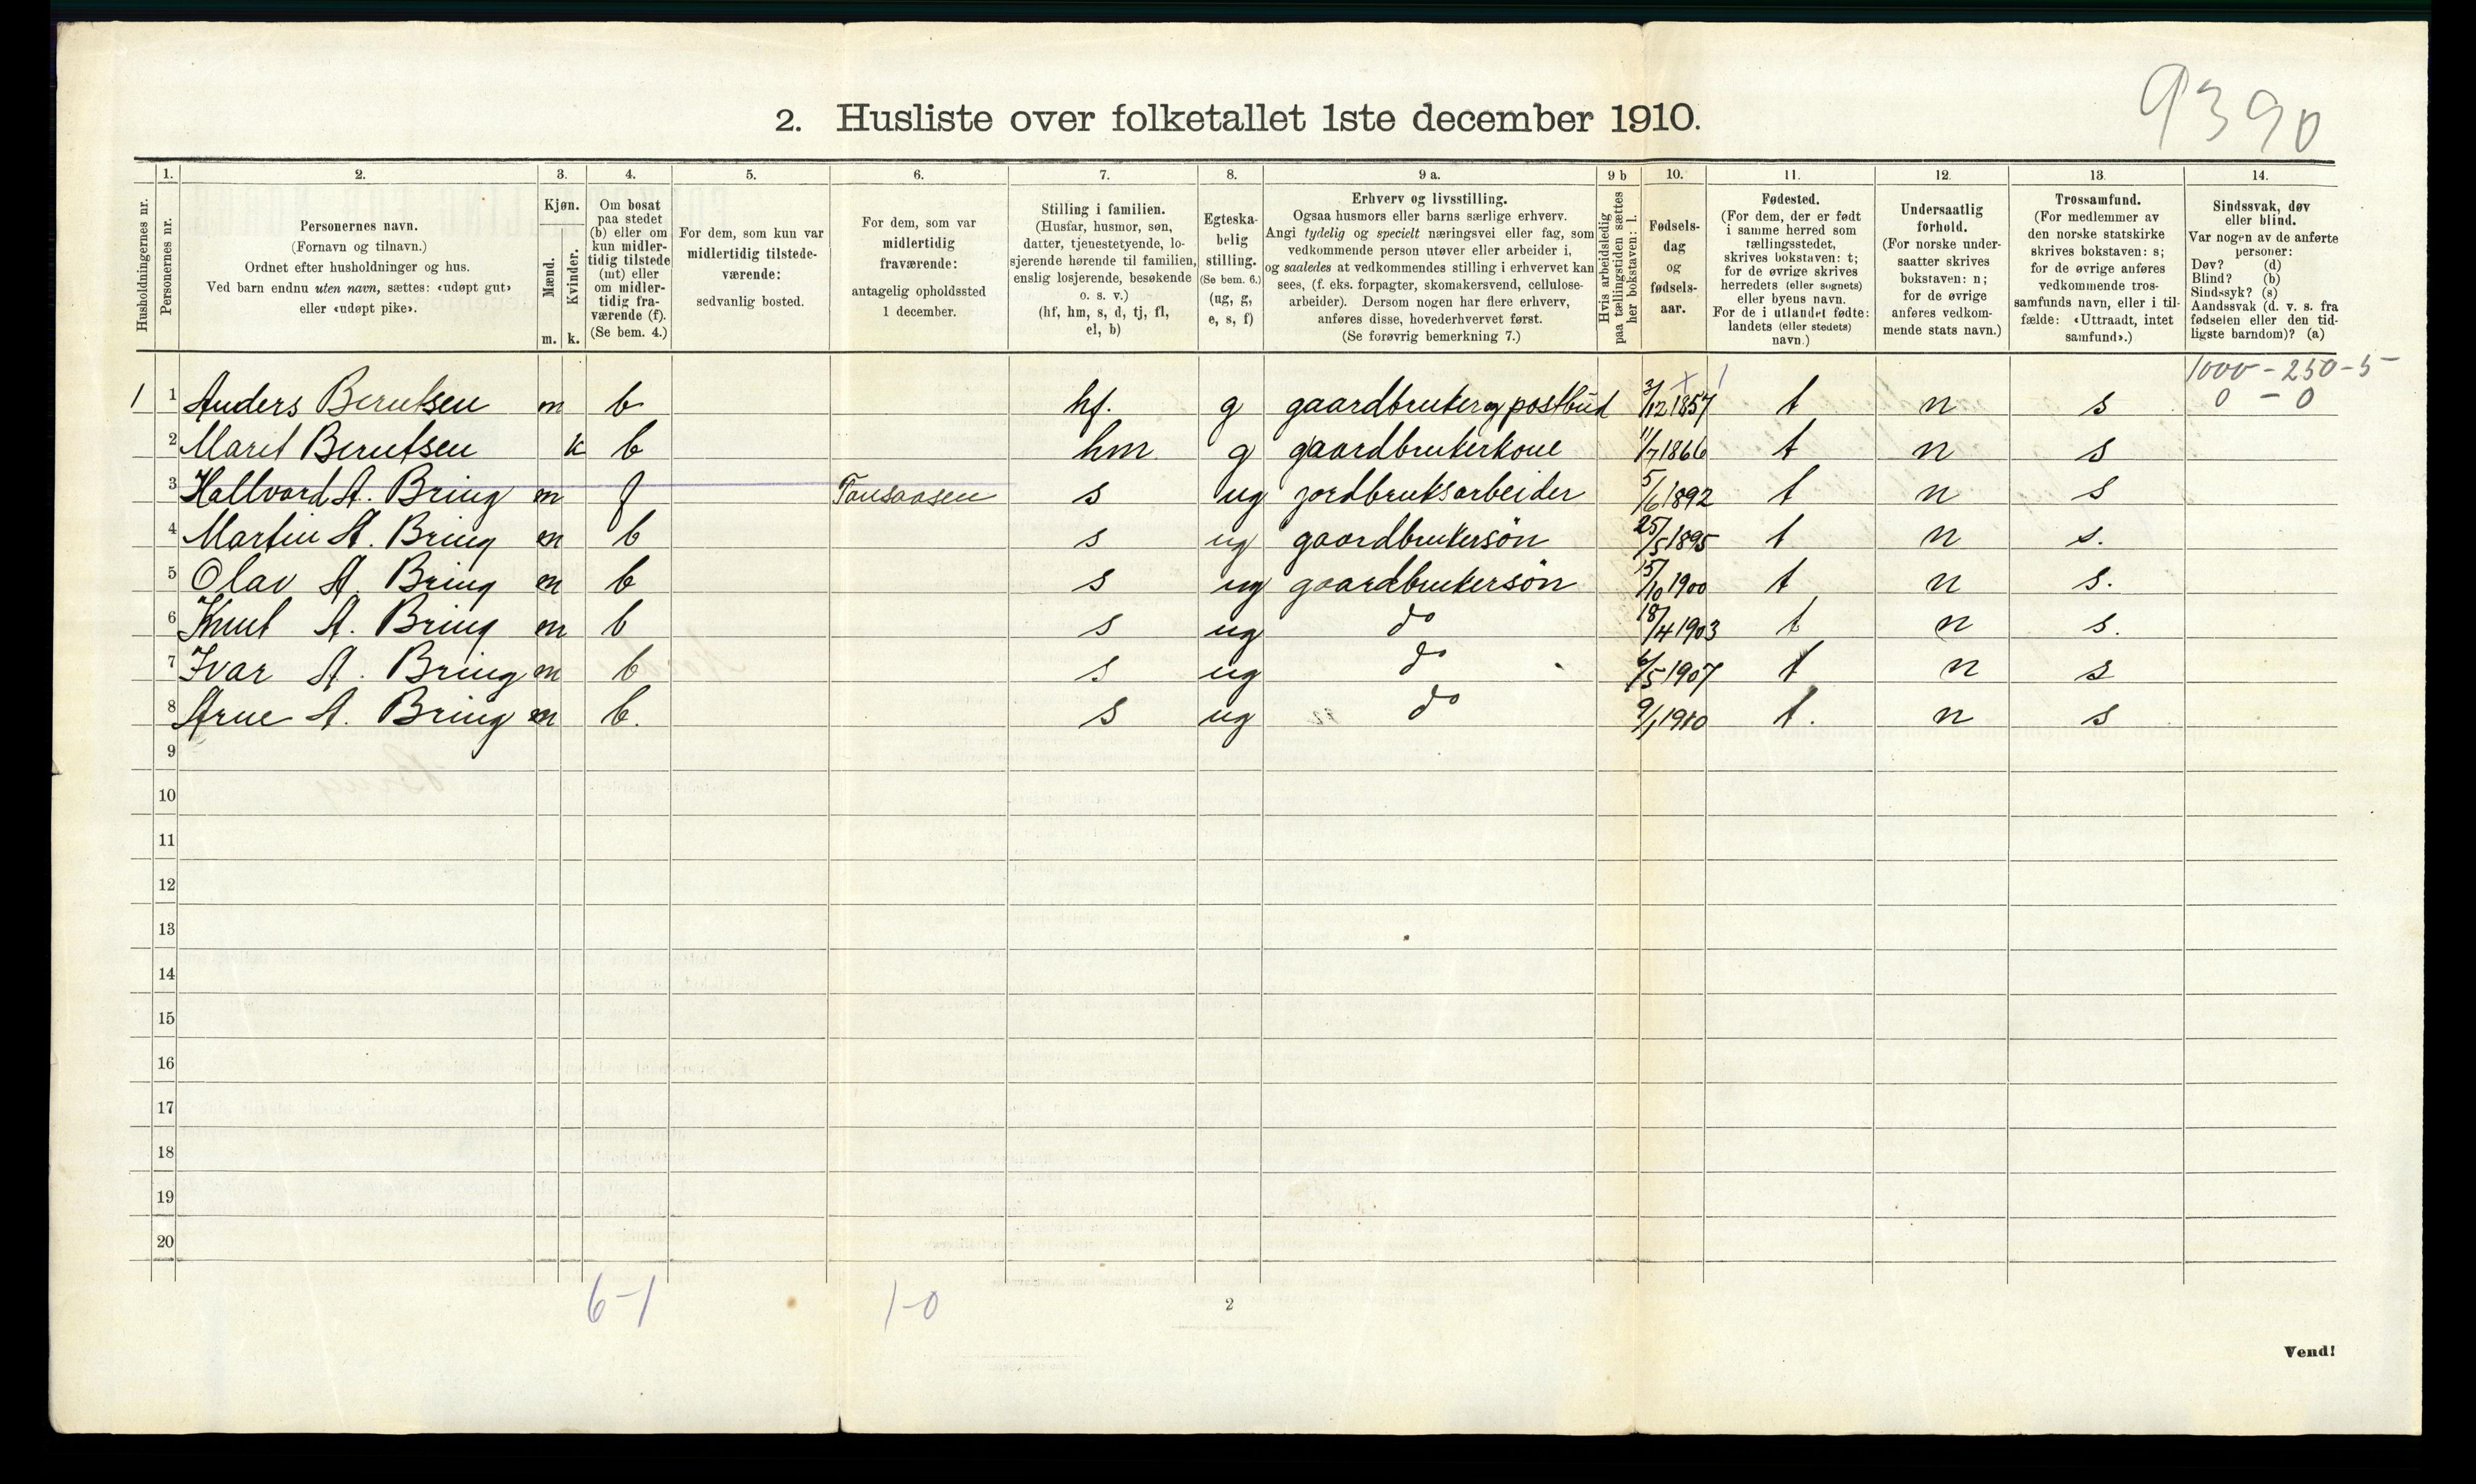 9390
2. Husliste over folketallet 1ste december 1910.
Husholdningernes nr.
1.
Personernes nr.
2.
Personernes navn.
(Fornavn og tilnavn.)
Ordnet efter husholdninger og hus.
Ved barn endnu uten navn, sættes: «udøpt gut»
eller «udøpt pike».
3.
Kjøn.
Mænd.
Kvinder.
m. k.
4.
Om bosat
paa stedet
(b) eller om
kun midler-
tidig tilstede
(mt) eller
om midler-
tidig fra-
værende (f).
(Se bem. 4.)
5.
For dem, som kun var
midlertidig tilstede-
værende:
sedvanlig bosted.
6.
For dem, som var
midlertidig
fraværende:
antagelig opholdssted
1 december.
7.
Stilling i familien.
(Husfar, husmor, søn,
datter, tjenestetyende, lo-
sjerende hørende til familien,
enslig losjerende, besøkende
o. s. v.)
(hf, hm, s, d, tj, fl,
el, b)
8.
Egteska-
belig
stilling.
(Se bem. 6.)
(ug, g,
e, s, f)
9 a.
Erhverv og livsstilling.
Ogsaa husmors eller barns særlige erhverv.
Angi tydelig og specielt næringsvei eller fag, som
vedkommende person utøver eller arbeider i,
og saaledes at vedkommendes stilling i erhvervet kan
sees, (f. eks. forpagter, skomakersvend, cellulose-
arbeider). Dersom nogen har flere erhverv,
anføres disse, hovederhvervet først.
(Se forøvrig bemerkning 7.)
9 b
Hvis arbeidsledig
paa tællingstiden sættes
her bokstaven: l.
10.
Fødsels-
dag
og
fødsels-
aar.
11.
Fødested.
(For dem, der er født
i samme herred som
tællingsstedet,
skrives bokstaven: t;
for de øvrige skrives
herredets (eller sognets)
eller byens navn.
For de i utlandet fødte:
landets (eller stedets)
navn.)
12.
Undersaatlig
forhold.
(For norske under-
saatter skrives
bokstaven: n;
for de øvrige
anføres vedkom-
mende stats navn.)
13.
Trossamfund.
(For medlemmer av
den norske statskirke
skrives bokstaven: s;
for de øvrige anføres
vedkommende tros-
samfunds navn, eller i til-
fælde: «Uttraadt, intet
samfund».)
14.
Sindssvak, døv
eller blind.
Var nogen av de anførte
personer:
Døv? (d)
Blind? (b)
Sindssyk? (s)
Aandssvak (d. v. s. fra
fødselen eller den tid-
ligste barndom)? (a)
1000 - 250 - 5
0 - 0
1 1 Anders Berntsen m b hf. g gaardbruker og postbud 3/12 1857 t n s
2 Marit Berntsen k b hm g gaardbrukerkone 11/7 1866 t n s
3 Hallvard A. Bring m f Tonsaasen s ug jordbruksarbeider 5/6 1892 t n s
4 Martin A. Bring m b s ug gaardbrukersön 25/5 1895 t n s.
5 Olav A. Bring m b s ug gaardbrukersön 15/10 1900 t n s.
6 Knut A. Bring m b s ug do 18/4 1903 t n s.
7 Ivar A. Bring m b s ug do 6/5 1907 t n s
8 Arne A. Bring m b. s ug do 9/1 1910 t. n s
9
10
11
12
13
14
15
16
17
18
19
20
6-1
1-0
2
Vend!